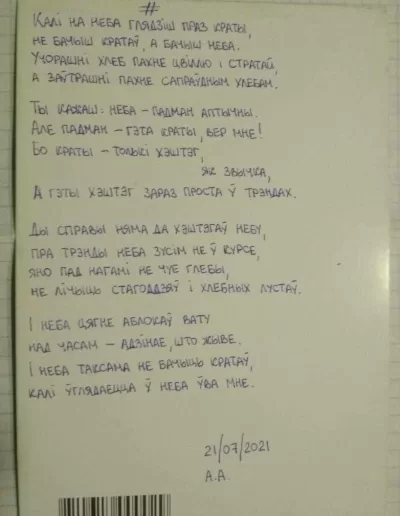 #
КАЛІ НА НЕБА ГЛЯДЗІШ ПРАЗ КРАТЫ,
НЕ БАЧЫШ КРАТАЎ, А БАЧЫШ НЕБА.
УЧОРАШНІ ХЛЕБ ПАХНЕ ЦВІЛЛЮ І СТРАТАЙ,
А ЗАЎТРАШНІ ПАХНЕ САПРАЎДНЫМ ХЛЕБАМ.
ТЫ КАЖАШ: НЕБА – ПАДМАН АПТЫЧНЫ.
АЛЕ ПАДМАН – ГЭТА КРАТЫ, ВЕР МНЕ!
БО КРАТЫ – ТОЛЬКІ ХЭШТЭГ,
ЯК ЗВЫЧКА,
А ГЭТЫ ХЭШТЭГ ЗАРАЗ ПРОСТА Ў ТРЭНДАХ.
ДЫ СПРАВЫ НЯМА ДА ХЭШТЭГАЎ НЕБУ,
ПРА ТРЭНДЫ НЕБА ЗУСІМ НЕ Ў КУРСЕ,
ЯНО ПАД НАГАМІ НЕ ЧУЕ ГЛЕБЫ,
НЕ ЛІЧЫЦЬ СТАГОДДЗЯЎ І ХЛЕБНЫХ ЛУСТАЎ.
І НЕБА ЦЯГНЕ АБЛОКАЎ ВАТУ
НАД ЧАСАМ – АДЗІНАЕ, ШТО ЖЫВЕ.
І НЕБА ТАКСАМА НЕ БАЧЫЦЬ КРАТАЎ,
КАЛІ ЎГЛЯДАЕЦЦА Ў НЕБА ЎВА МНЕ.
21/07/2021
А.А.